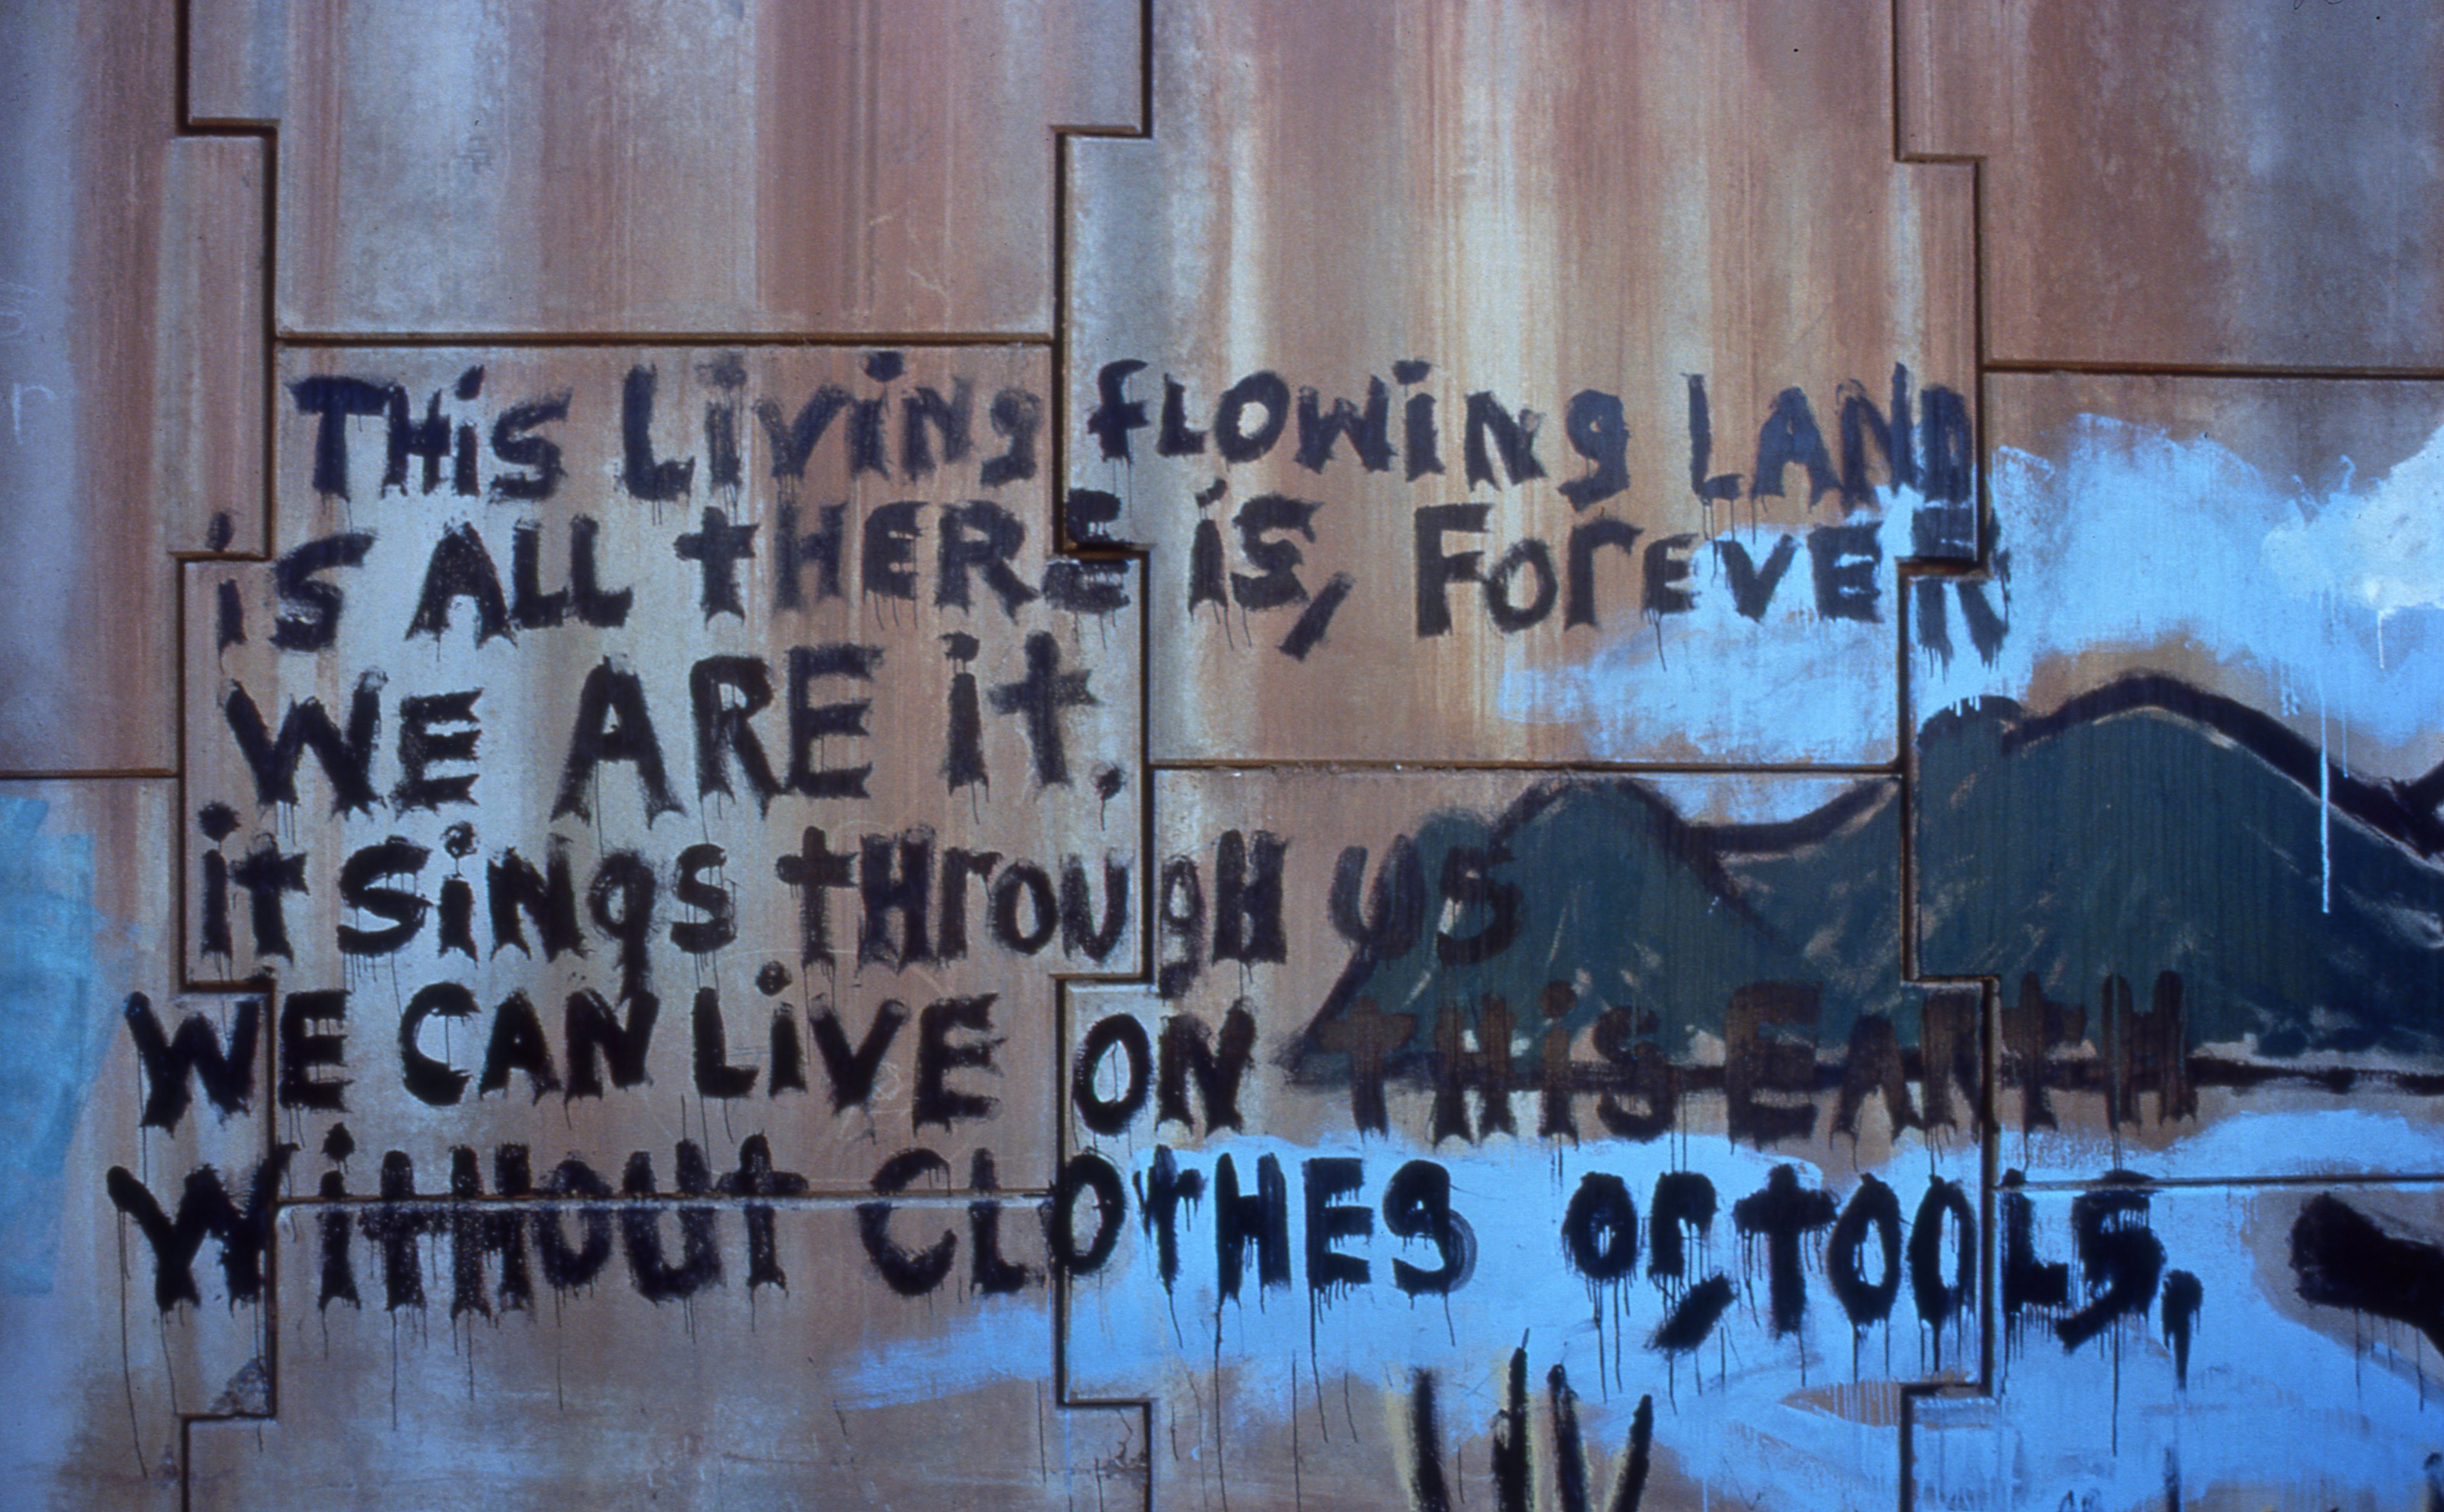 THiS LiviNg fLOWiNg LAND
iS ALL tHERE iS, FOrEVER
WE ARE it.
it SiNgS tHrOUgH US
WE CAN LiVE ON tHiS EArtH
WitHOUt CLOtHES Or, tOOLS,